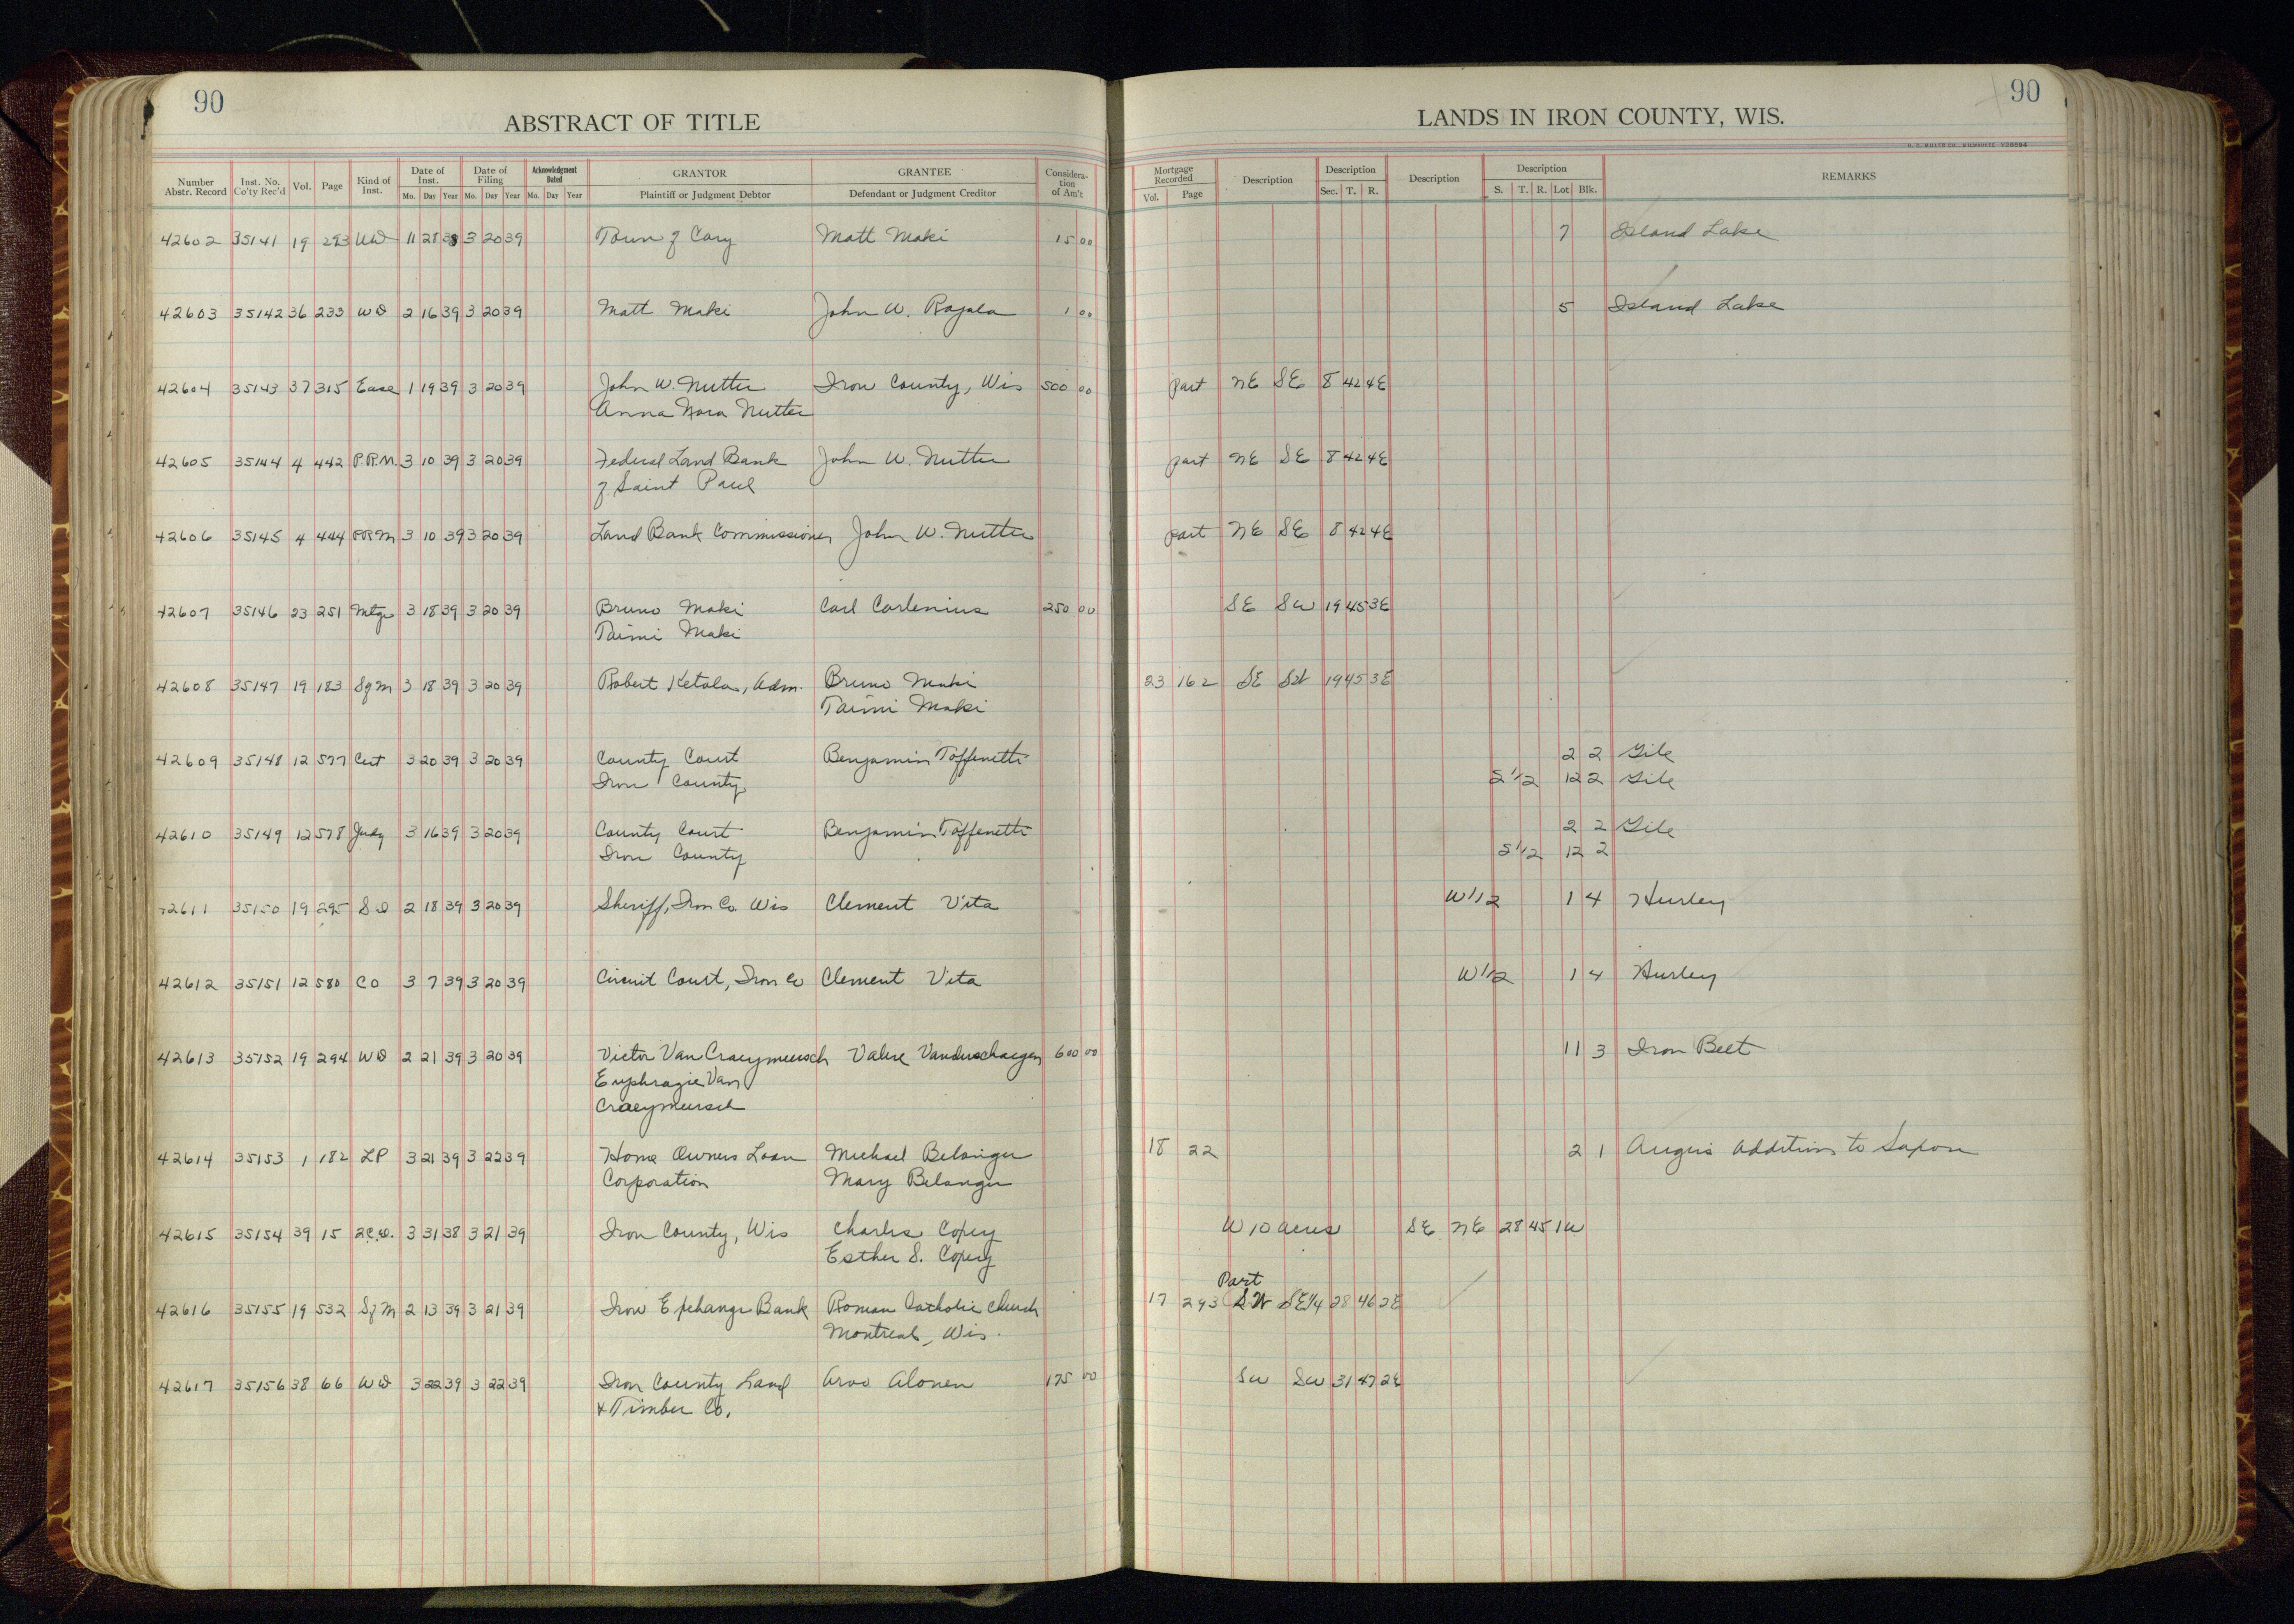 90
ABSTRACT OF TITLE
LANDS IN IRON COUNTY, WIS.
90
Number Abstr. Record Inst. No. Co'ty Rec'd Vol. Page Kind of Inst. Date of Inst. Mo. Day Year Date of Filing Mo. Day Year Acknowledgment Dated Mo. Day Year GRANTOR Plaintiff or Judgment Debtor GRANTEE Defendant or Judgment Creditor Consideration of Am't Mortgage Recorded Vol. Page Description Description Sec. T. R. Description Description S. T. R. Lot Blk. REMARKS
42602 35141 19 293 WD 11 28 38 3 20 39 Town of Cary Matt Maki 15 00 7 Island Lake
42603 35142 36 233 WD 2 16 39 3 20 39 Matt Maki John W. Rajala 1 00 5 Island Lake
42604 35143 37 315 Ease 1 19 39 3 20 39 John W. Nutter Iron County, Wis 500 00 Part NE SE 8 42 4E
Anna Nora Nutter
42605 35144 4 442 P.R.M. 3 10 39 3 20 39 Federal Land Bank John W. Nutter Part NE SE 8 42 4E
of Saint Paul
42606 35145 4 444 PRM 3 10 39 3 20 39 Land Bank Commissioner John W. Nutter Part NE SE 8 42 4E
42607 35146 23 251 Mtge 3 18 39 3 20 39 Bruno Maki Carl Carlenius 250 00 SE SW 19 45 3E
Taimi Maki
42608 35147 19 183 SfM 3 18 39 3 20 39 Robert Ketola, Adm. Bruno Maki 23 162 SE SW 19 45 3E
Taimi Maki
42609 35148 12 577 Cert 3 20 39 3 20 39 County Court Benjamin Toffenetti 2 2 Gile
Iron County S 1/2 12 2 Gile
42610 35149 12 578 Judg 3 16 39 3 20 39 County Court Benjamin Toffenetti 2 2 Gile
Iron County S 1/2 12 2
42611 35150 19 295 SD 2 18 39 3 20 39 Sheriff, Iron Co. Wis Clement Vita W 1/2 1 4 Hurley
42612 35151 12 580 CO 3 7 39 3 20 39 Circuit Court, Iron Co Clement Vita W 1/2 1 4 Hurley
42613 35152 19 294 WD 2 21 39 3 20 39 Victor Van Craeymeersch Valere Vanderschaegen 600 00 11 3 Iron Belt
Euphrazie Van
Craeymeersch
42614 35153 1 182 LP 3 21 39 3 22 39 Home Owners Loan Michael Belanger 18 22 2 1 Angus Addition to Saxon
Corporation Mary Belanger
42615 35154 39 15 2C.D. 3 31 38 3 21 39 Iron County, Wis Charles Copey W 10 acres SE NE 28 45 1W
Esther S. Copey
Part
42616 35155 19 532 SfM 2 13 39 3 21 39 Iron Exchange Bank Roman Catholic Church 17 293 SW SE1/4 28 46 2E
Montreal, Wis.
42617 35156 38 66 WD 3 22 39 3 22 39 Iron County Land Arvo Alonen 175 00 SW SW 31 47 2E
& Timber Co.